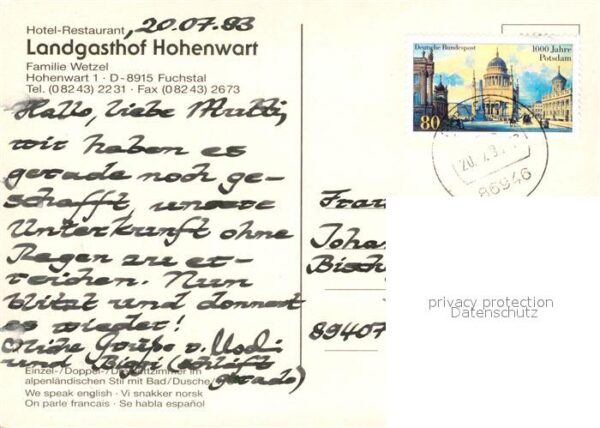 Hotel-Restaurant, 20.07.93
Landgasthof Hohenwart
Familie Wetzel
Hohenwart 1 · D-8915 Fuchstal
Tel. (0 82 43) 22 31 · Fax (0 82 43) 26 73
Hallo, liebe Mutti,
wir haben es
gerade noch ge-
schafft, unsere
Unterkunft ohne
Regen zu er-
reichen. Nun
blitzt und donnert
es wieder!
Liebe Grüße v. Usch
und Biggi (schläft
gerade)
Einzel-/Doppel-/ im
alpenländischen Stil mit Bad/Dusche/
We speak english · Vi snakker norsk
On parle francais · Se habla español
Deutsche Bundespost
1000 Jahre
Potsdam
80
20. 7.93
86946
Frau
Joha
Bisch
89407
privacy protection
Datenschutz